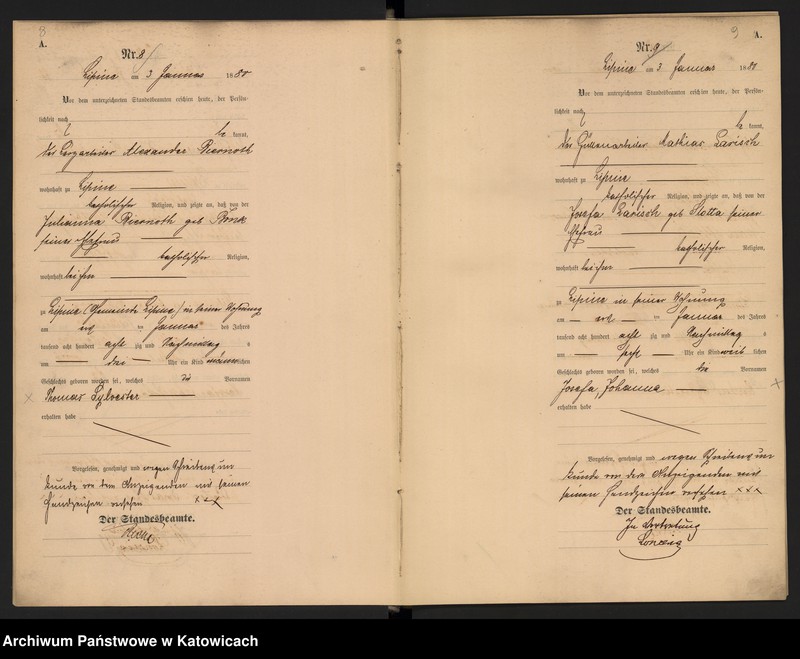 8
A.
Nr. 8
Lipine am 3 Januar 1880
Vor dem unterzeichneten Standesbeamten erschien heute, der Persön-
lichkeit nach
be kannt,
der Alexander
wohnhaft zu Lipine
katholischer Religion, und zeigte an, daß von der
Julianna geb
seiner Ehefrau
katholischer Religion,
wohnhaft bei ihm
zu Lipine (Gemeinde Lipine) in seiner Wohnung
am ten Januar des Jahres
tausend acht hundert acht zig und Nachmittag s
um drei Uhr ein Kind männlichen
Geschlechts geboren worden sei, welches die Vornamen
Thomas Sylvester
erhalten habe
Vorgelesen, genehmigt und wegen Schreibensun
kunde von dem Anzeigenden mit seinem
Handzeichen versehen xxx
Der Standesbeamte.
9
A.
Nr. 9
Lipine am 3 Januar 1880
Vor dem unterzeichneten Standesbeamten erschien heute, der Persön-
lichkeit nach
be kannt,
der Hüttenarbeiter Mathias Larisch
wohnhaft zu Lipine
katholischer Religion, und zeigte an, daß von der
Josefa Larisch geb Slotta seiner
Ehefrau
katholischer Religion,
wohnhaft bei ihm
zu Lipine in seiner Wohnung
am ten Januar des Jahres
tausend acht hundert acht zig und Nachmittag s
um Uhr ein Kind weib lichen
Geschlechts geboren worden sei, welches die Vornamen
Josefa, Johanna
erhalten habe
Vorgelesen, genehmigt und wegen Schreibensun
kunde von dem Anzeigenden mit
seinem Handzeichen versehen xxx
Der Standesbeamte.
In Vertretung
Archiwum Państwowe w Katowicach